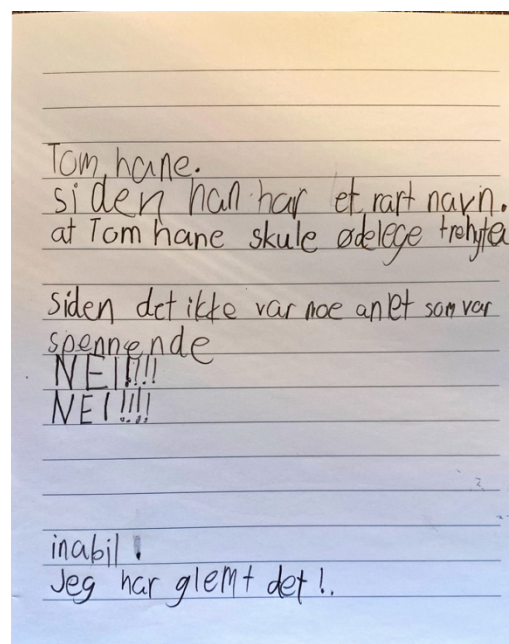 Tom hane.
siden han har et rart navn.
at Tom hane skule ødelege trehyta
siden det ikke var noe anlet som var
spennende
NEI!!!!
NEI!!!!
inabil!
Jeg har glemt det!.